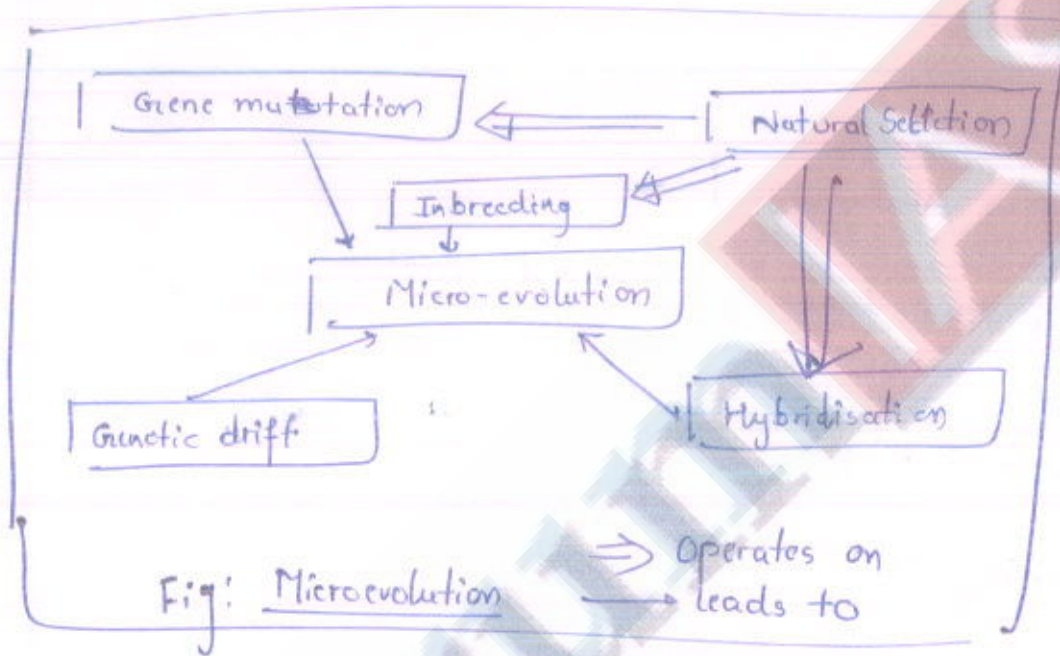 Gene mutation
Natural Selection
Inbreeding
Micro-evolution
Genetic drift
Hybridisation
⇒ Operates on
Fig: Microevolution → leads to